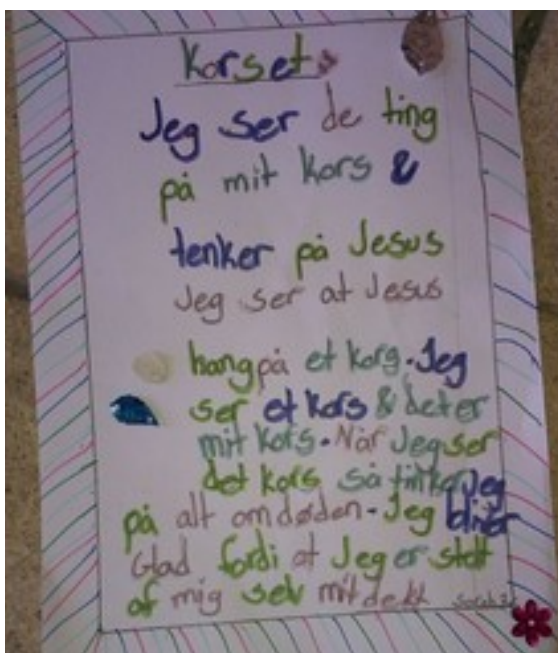 Korset
Jeg ser de ting
på mit kors &
tenker på Jesus
Jeg ser at Jesus
hang på et kors. Jeg
ser et kors & det er
mit kors. Når Jeg ser
det kors så tinker Jeg
på alt om døden. Jeg bliver
Glad fordi at Jeg er stolt
af mig selv mit